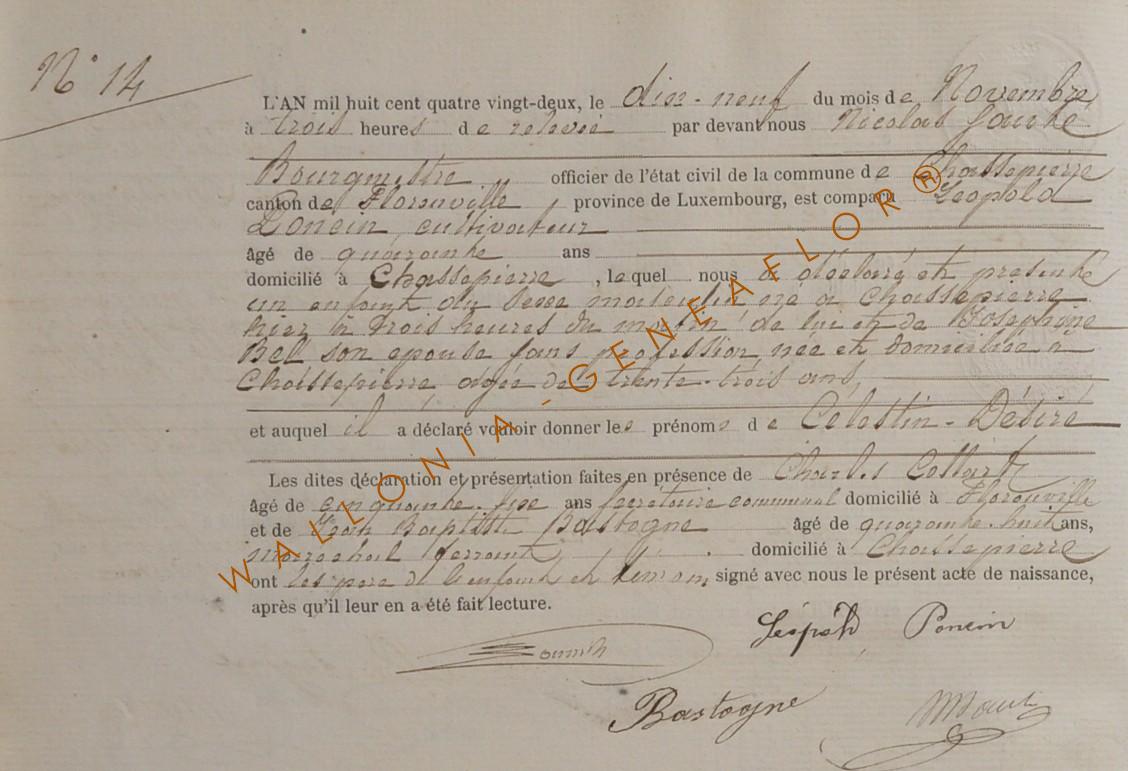 N° 14
L'AN mil huit cent quatre vingt-deux, le dix-neuf du mois de Novembre
à trois heures de relevée par devant nous Nicolas
Bourgmestre officier de l'état civil de la commune de Chassepierre
canton de Florenville province de Luxembourg, est comparu Léopold
Poncin, cultivateur
âgé de quarante ans
domicilié à Chassepierre, lequel nous a déclaré et présenté
un enfant du sexe masculin né à Chassepierre
hier à trois heures du matin de lui et de Joséphine
Bell son épouse sans profession née et domiciliée à
Chassepierre âgée de trente-trois ans,
et auquel il a déclaré vouloir donner les prénoms de Célestin-Désiré
Les dites déclaration et présentation faites en présence de Charles Collart
âgé de cinquante-six ans secrétaire communal domicilié à Florenville
et de Jean Baptiste Bastogne âgé de quarante-huit ans,
maréchal ferrant domicilié à Chassepierre
ont les père de l'enfant et témoins signé avec nous le présent acte de naissance,
après qu'il leur en a été fait lecture.
Léopold Poncin
Bastogne
WALLONIA-GENEAFLOR ®